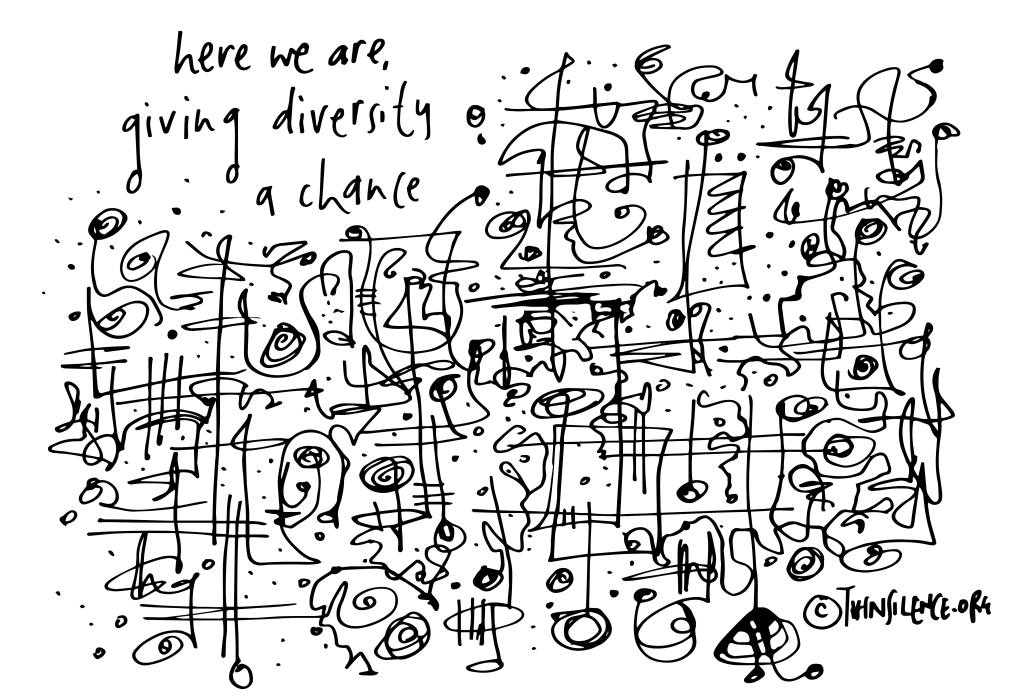 here we are,
giving diversity
a chance
© TWINSILENCE.ORG